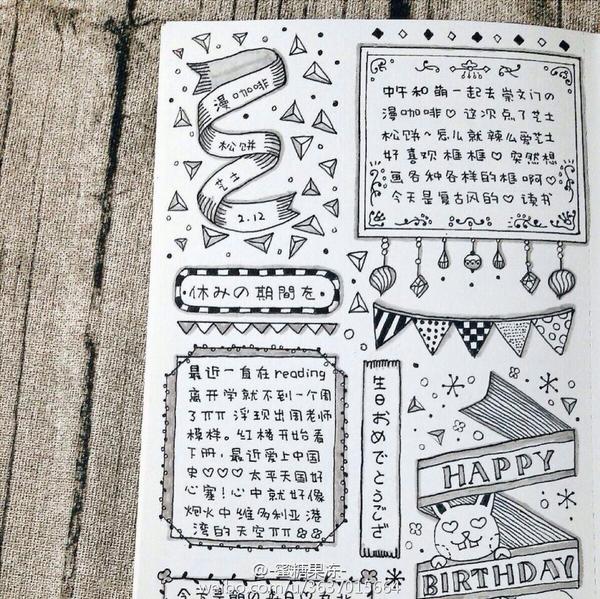 漫咖啡
松饼
芝士
2.12
中午和萌一起去崇文门の
漫咖啡♡这次点了芝士
松饼~怎么就辣么爱芝士
好喜欢框框♡突然想
画各种各样的框啊♡
今天是复古风的♡读书
·休みの期間を·
最近一直在reading
离开学就不到一个周
了ππ浮现出周老师
模样。红楼开始看
下册,最近爱上中国
史♡♡♡太平天国好
心塞!心中就好像
炮火中维多利亚港
湾的天空ππ
生日おめでとうござ
HAPPY
BIRTHDAY
@-蜜糖果冻-